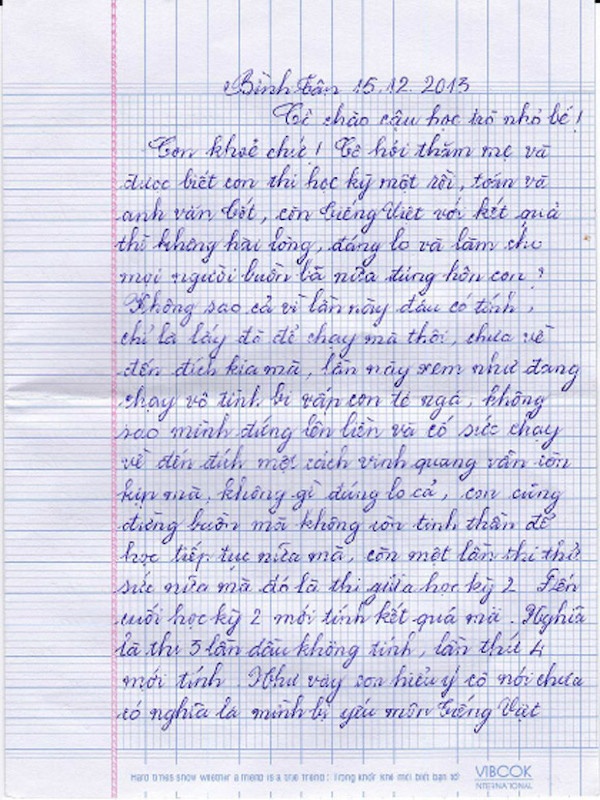 Bình Tân 15.12.2013
Cô chào cậu học trò nhỏ bé!
Con khoẻ chứ! Cô hỏi thăm mẹ và
được biết con thi học kỳ một rồi, toán và
anh văn tốt, còn Tiếng Việt với kết quả
thì không hài lòng, đáng lo và làm cho
mọi người buồn bã nữa đúng hôn con?
Không sao cả vì lần này đâu có tính,
chỉ là lấy đà để chạy mà thôi, chưa về
đến đích kia mà, lần này xem như đang
chạy vô tình bị vấp con té ngã, không
sao mình đứng lên liền và cố sức chạy
về đến đích một cách vinh quang vẫn còn
kịp mà, không gì đáng lo cả, con cũng
đừng buồn mà không còn tinh thần để
học tiếp tục nữa mà, còn một lần thi thử
sức nữa mà đó là thi giữa học kỳ 2 Đến
cuối học kỳ 2 mới tính kết quả mà. Nghĩa
là thi 3 lần đầu không tính, lần thứ 4
mới tính. Như vậy con hiểu ý cô nói chưa
có nghĩa là mình bị yếu môn Tiếng Việt
Hard times show whether a friend is a true friend: Trong khốn khó mới biết bạn tốt
VIBOOK
INTERNATIONAL